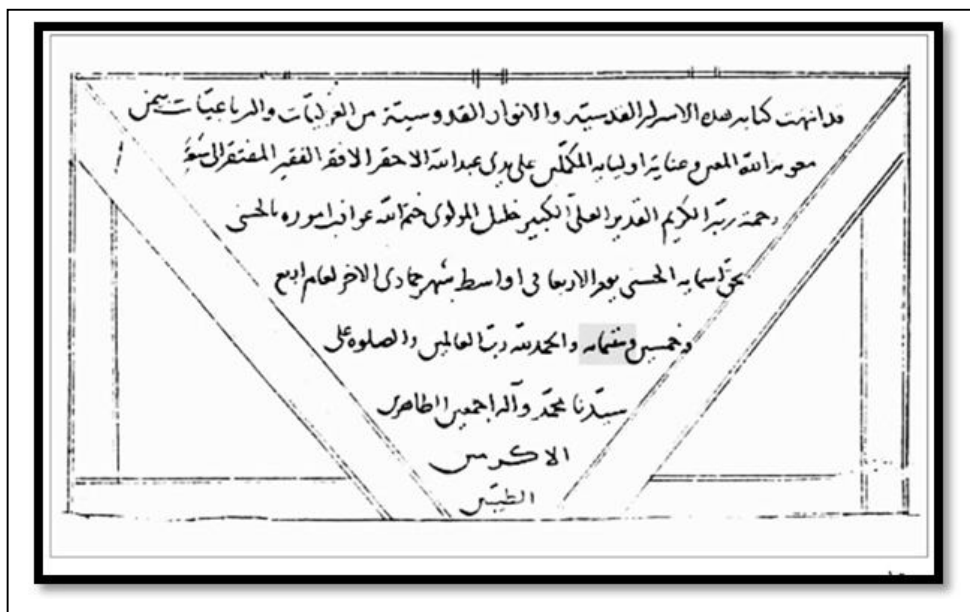 قد انتهت كتابه هذه الاسرار القدسيّة والانوار القدوسيّة من الغزليّات والرباعيّات بيمن
معونه الله المعين وعناية اوليايه المكمّلين على يدي عبد الله الاحقر الافقر الفقير المفتقر الى سعة
رحمة ربّه الكريم القدير العليّ الكبير خليل المولوى ختم الله عواقب اموره بالحسنى
بحقّ اسمايه الحسنى يوم الاربعا فى اواسط شهر جمادى الاخر لعام اربع
وخمسين والحمد لله ربّ العالمين والصلوة على
سيّدنا محمّد وآله اجمعين الطاهرين
الاكرمين
الطيّبين